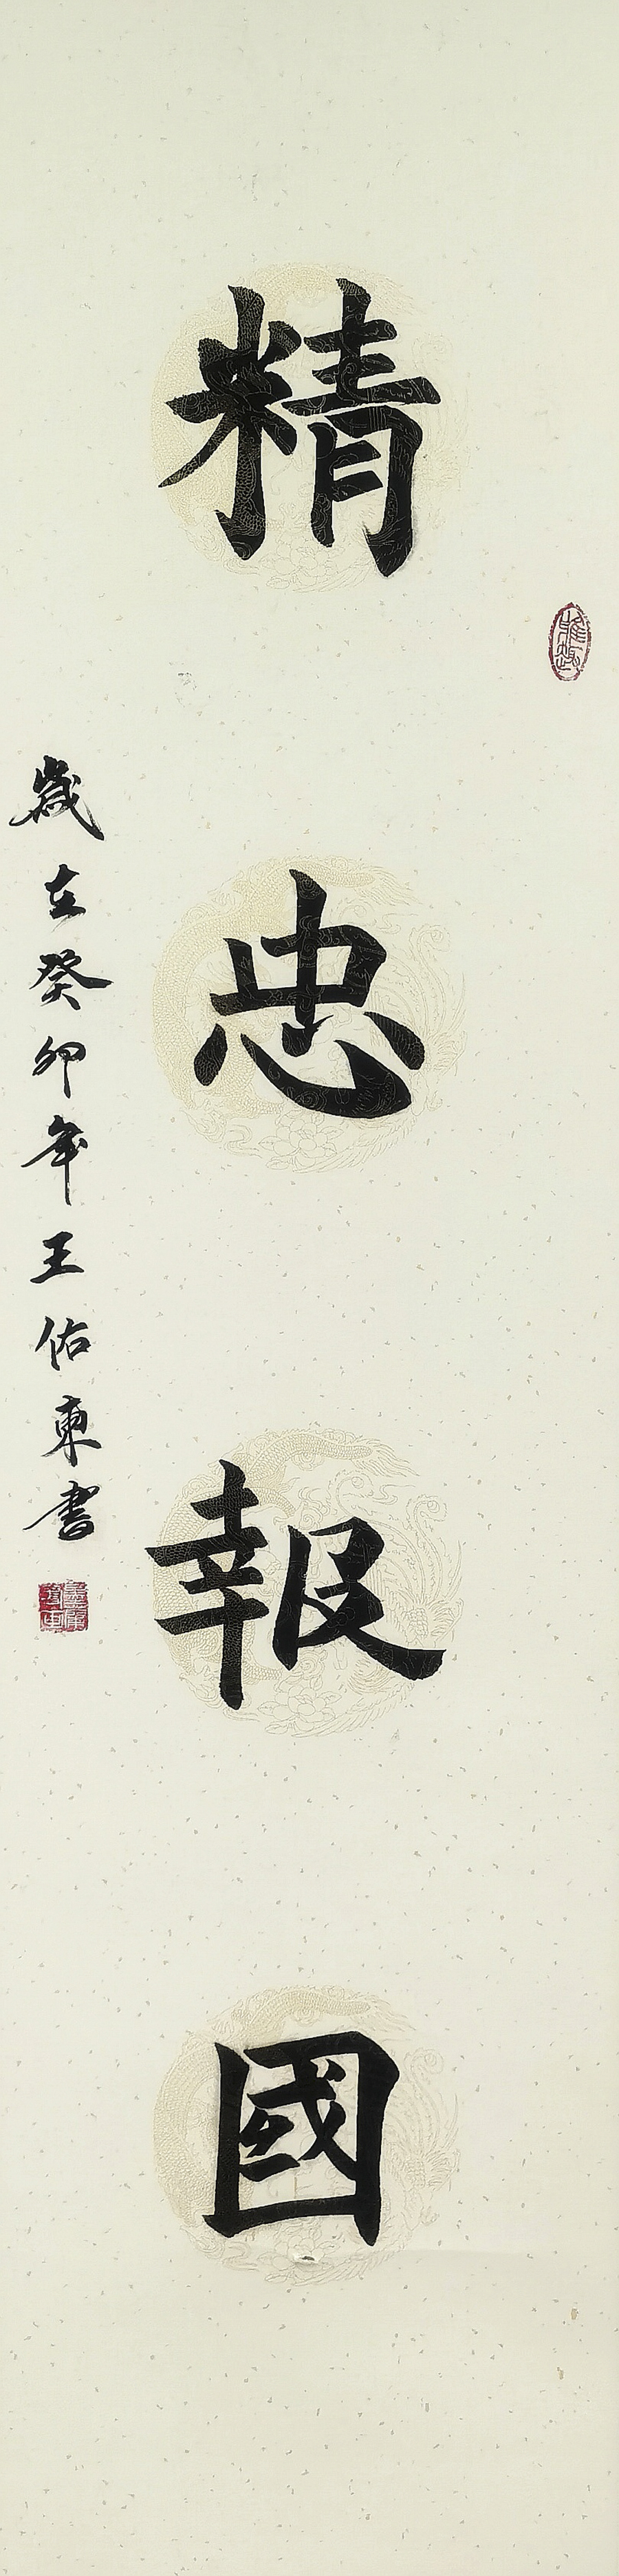 精忠報國
歲在癸卯年王佑東書